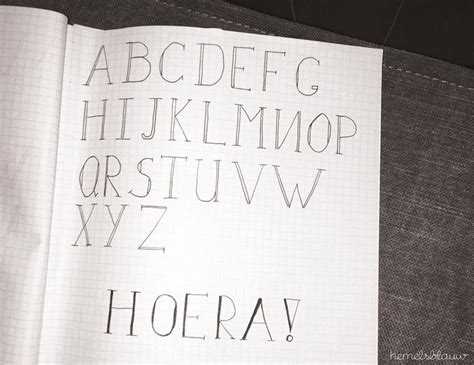 ABCDEFG
HIJKLMNOP
QRSTUVW
XYZ
HOERA!
hemelsblauw